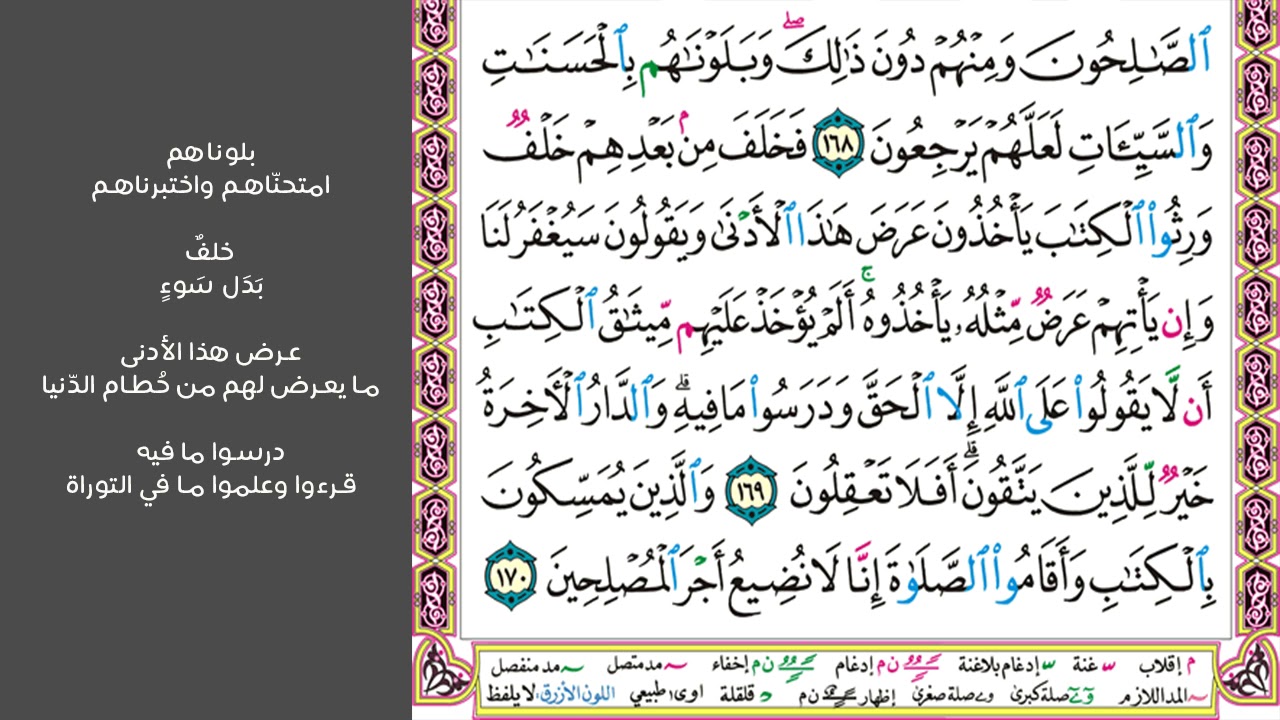 ٱلصَّٰلِحُونَ وَمِنْهُمْ دُونَ ذَٰلِكَ ۖ وَبَلَوْنَٰهُم بِٱلْحَسَنَٰتِ
وَٱلسَّيِّـَٔاتِ لَعَلَّهُمْ يَرْجِعُونَ ١٦٨ فَخَلَفَ مِنۢ بَعْدِهِمْ خَلْفٌ
وَرِثُوا۟ ٱلْكِتَٰبَ يَأْخُذُونَ عَرَضَ هَٰذَا ٱلْأَدْنَىٰ وَيَقُولُونَ سَيُغْفَرُ لَنَا
وَإِن يَأْتِهِمْ عَرَضٌ مِّثْلُهُۥ يَأْخُذُوهُ ۚ أَلَمْ يُؤْخَذْ عَلَيْهِم مِّيثَٰقُ ٱلْكِتَٰبِ
أَن لَّا يَقُولُوا۟ عَلَى ٱللَّهِ إِلَّا ٱلْحَقَّ وَدَرَسُوا۟ مَا فِيهِ ۗ وَٱلدَّارُ ٱلْـَٔاخِرَةُ
خَيْرٌ لِّلَّذِينَ يَتَّقُونَ ۗ أَفَلَا تَعْقِلُونَ ١٦٩ وَٱلَّذِينَ يُمَسِّكُونَ
بِٱلْكِتَٰبِ وَأَقَامُوا۟ ٱلصَّلَوٰةَ إِنَّا لَا نُضِيعُ أَجْرَ ٱلْمُصْلِحِينَ ١٧٠
م إقلاب س غنة س إدغام بلاغنة ن م إدغام ن م إخفاء مد متصل مد منفصل
المد اللازم صلة كبرى صلة صغرى إظهار ن م د قلقلة اوى١ طبيعي اللون الأزرق: لا يلفظ
بلوناهم
امتحنّاهم واختبرناهم
خلفٌ
بَدَل سَوءٍ
عرض هذا الأدنى
ما يعرض لهم من حُطام الدّنيا
درسوا ما فيه
قرءوا وعلموا ما في التوراة